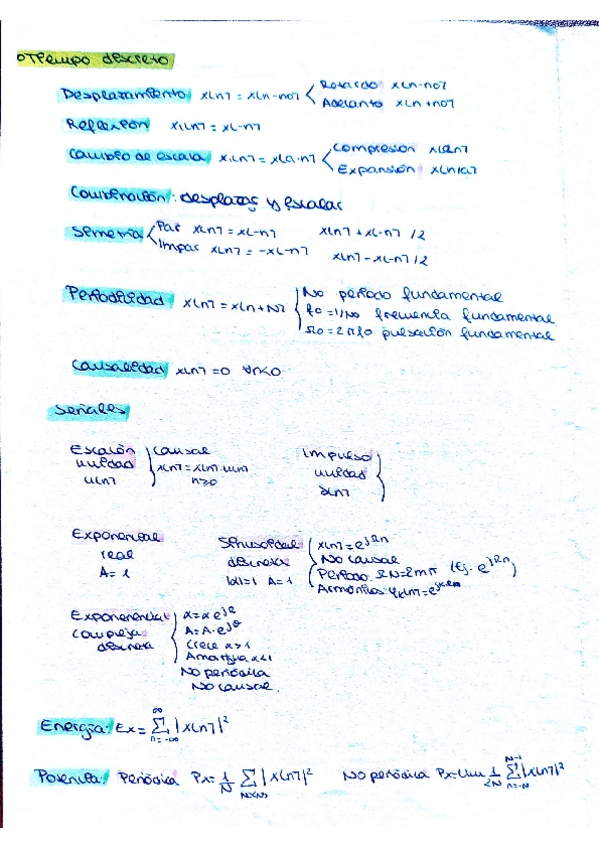 Tiempo discreto
Desplazamiento x[n] = x[n-no] Retardo x[n-no]
Adelanto x[n+no]
Reflexión x1[n] = x[-n]
Cambio de escala x1[n] = x[a·n] Compresión x[an]
Expansión x[n/a]
Combinación: desplazar y escalar
Simetría Par x[n] = x[-n] x[n] + x[-n] /2
Impar x[n] = -x[-n] x[n] - x[-n] /2
Periodicidad x[n] = x[n+N] No período fundamental
fo = 1/No frecuencia fundamental
Ωo = 2πfo pulsación fundamental
Causalidad x[n] = 0 ∀n<0
Señales
Escalón unidad u[n] Causal x[n] = x[n]·u[n] n≥0
Impulso unidad δ[n]
Exponencial real A=1
Sinusoidal discreta |α|=1 A=1
x[n] = e^jΩn
No causal
Período ΩN=2mπ (Ej. e^jΩn)
Armónicos
Exponenencial compleja discreta
A=A·e^jθ
Crece α>1
Amortigua α<1
No periódica
No causal.
Energía: Ex = ∞ Σ n=-∞ |x[n]|²
Potencia: Periódica Px = 1/N Σ n=<N> |x[n]|² No periódica Px = lim 1/2N N-1 Σ n=-N |x[n]|²